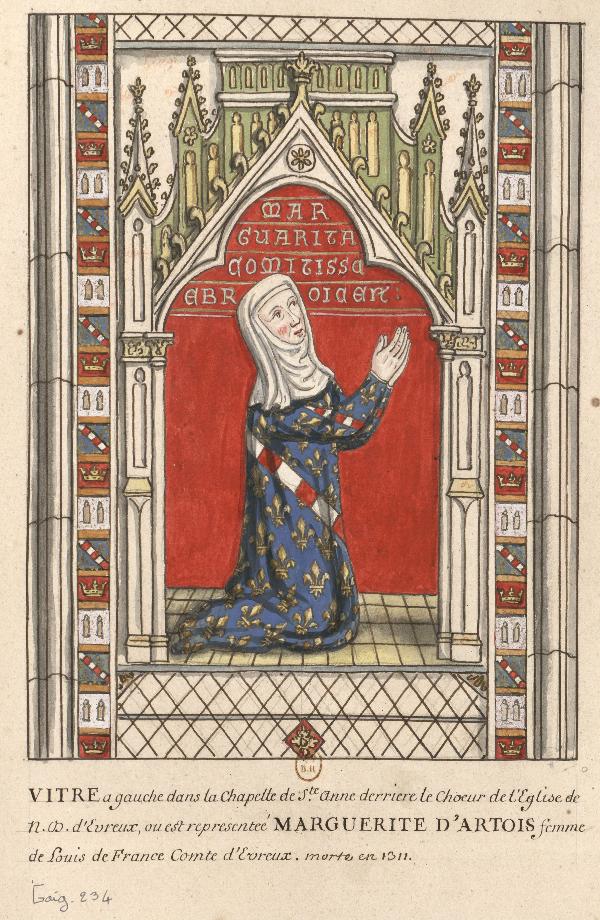 MAR
GUARITA
COMITISSA
EBR OICEN:
B.R
VITRE a gauche dans la Chapelle de S.te Anne derriere le Choeur de l'Eglise de
N. D. d'Evreux, ou est representeé MARGUERITE D'ARTOIS femme
de Louis de France Comte d'Evreux. morte en 1311.
Gaig. 234